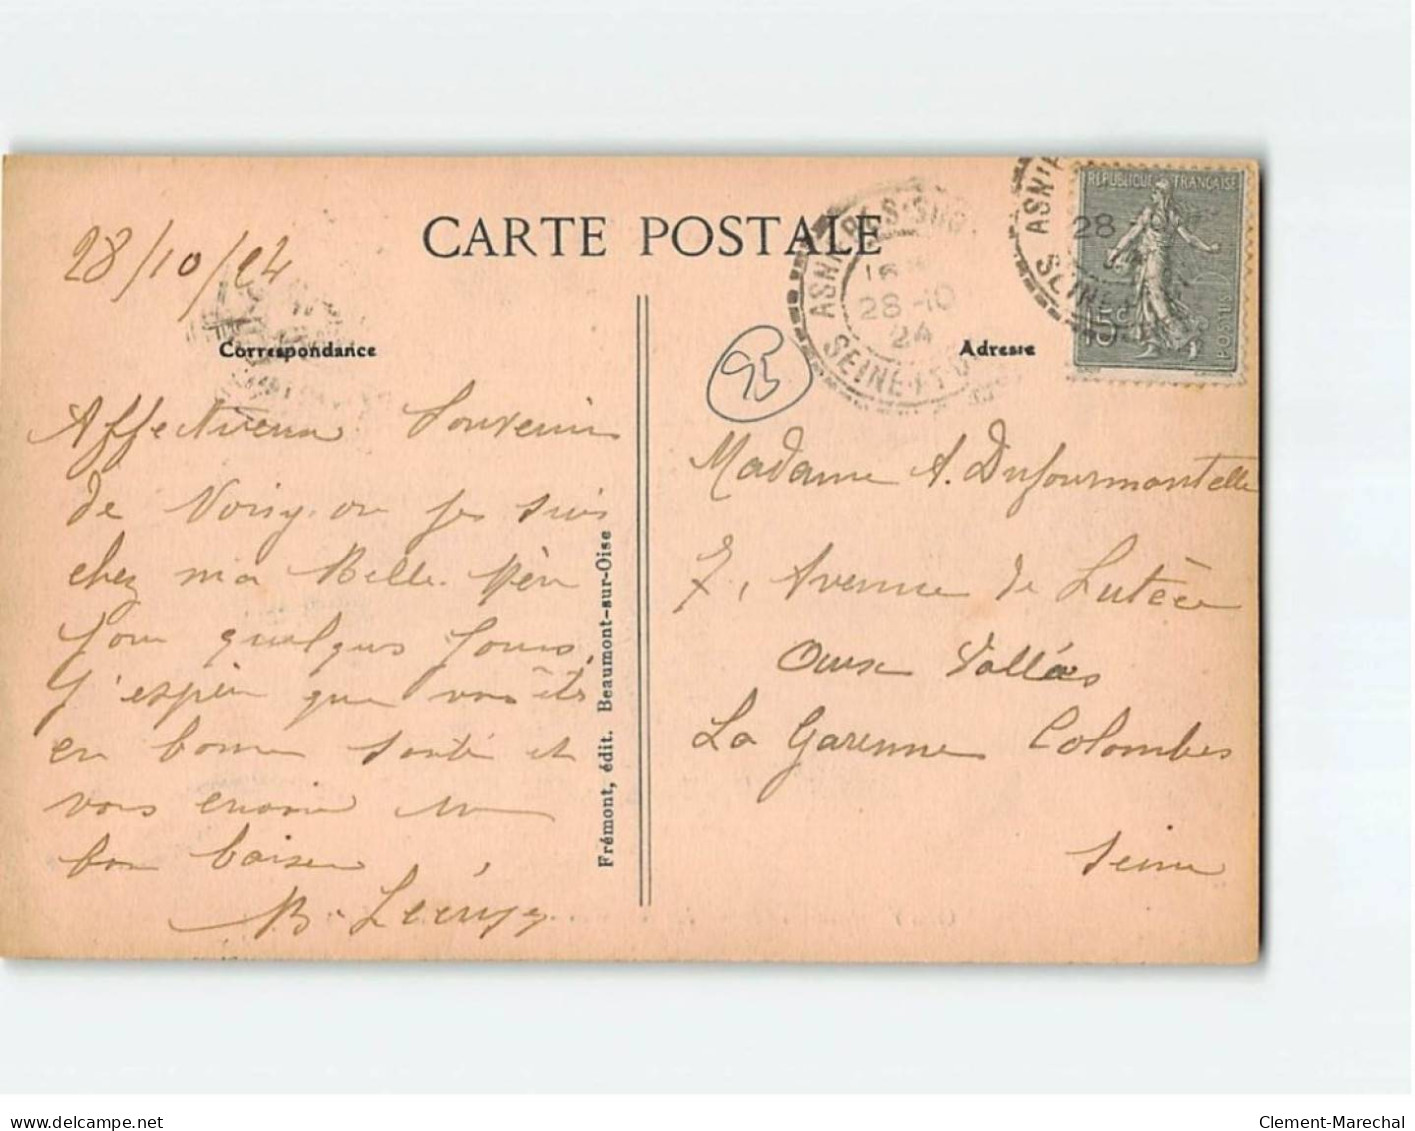 CARTE POSTALE
28/10/24
Correspondance
Adresse
95
ASNIERES-SUR-
16
28-10
24
SEINE
ASNI
28
SEINE
REPUBLIQUE FRANÇAISE
15c
POSTES
Affectueux Souvenir
de Noisy. ou je suis
chez ma Belle. Mère
pour quelques jours,
J'espère que vous êtes
en bonne santé et
vous envoie un
bon baiser
Madame A. Dufourmantelle
7, Avenue de Lutèce
Aux Vallées
La Garenne Colombes
Seine
Frémont, édit. Beaumont-sur-Oise
delcampe.net
Clement-Marechal